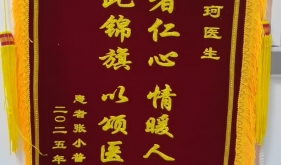 珂医生
者仁心 情暖人
此锦旗 以颂医
患者张小普
二〇二五年